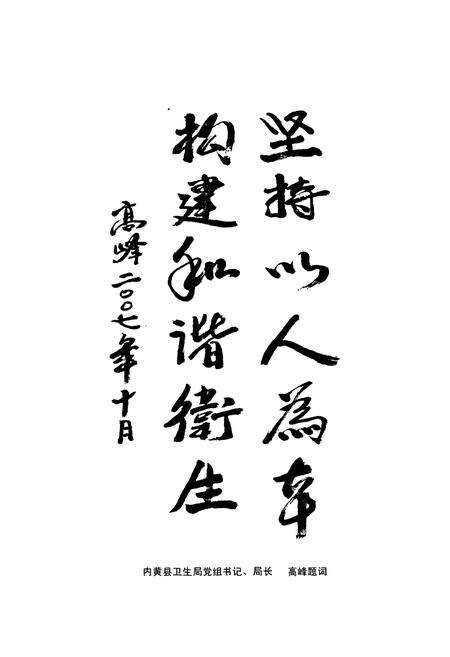 坚持以人为本
构建和谐卫生
高峰二〇〇七年十月
内黄县卫生局党组书记、局长 高峰题词